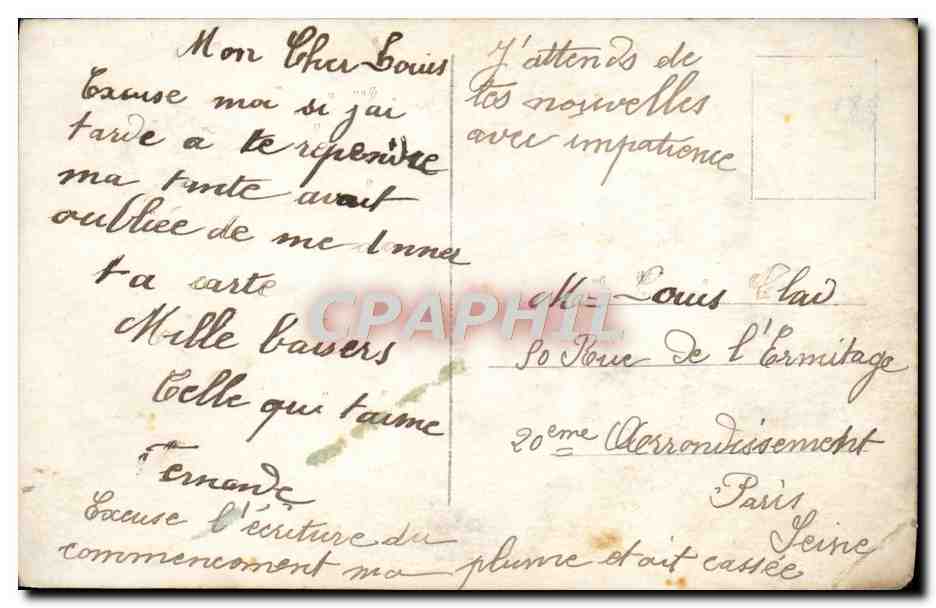 Mon Cher Louis
Excuse moi si j'ai
tardé à te répondre
ma tante avait
oubliée de me donner
ta carte
Mille baisers
Celle qui t'aime
Fernande
Excuse l'écriture du
commencement ma plume etait cassée
J'attends de
tes nouvelles
avec impatience
Mr Louis
Rue de l'Ermitage
20eme Arrondissement
Paris
Seine
CPAPHIL